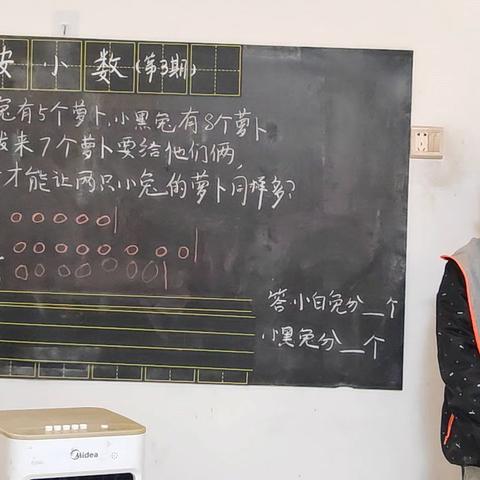 安小数(第3期)
兔有5个萝卜,小黑兔有8个萝卜
来7个萝卜要给他们俩,
才能让两只小兔的萝卜同样多?
答小白兔分__个
小黑兔分__个
Midea